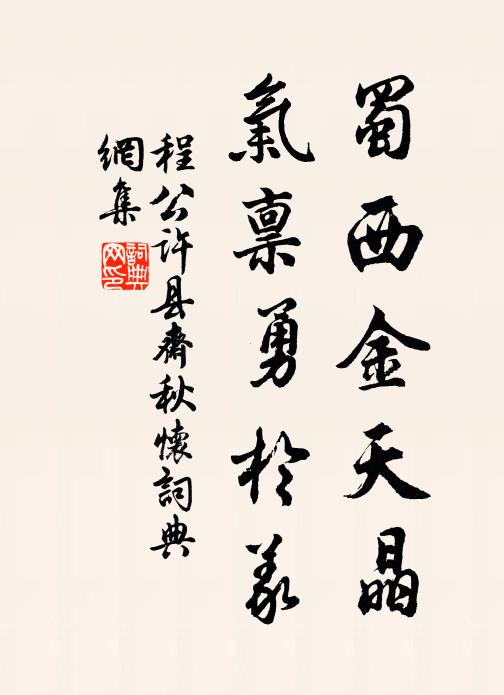 蜀西金天晶
氣禀勇於義
程公许县齋秋懷詞典
網集
詞典網印